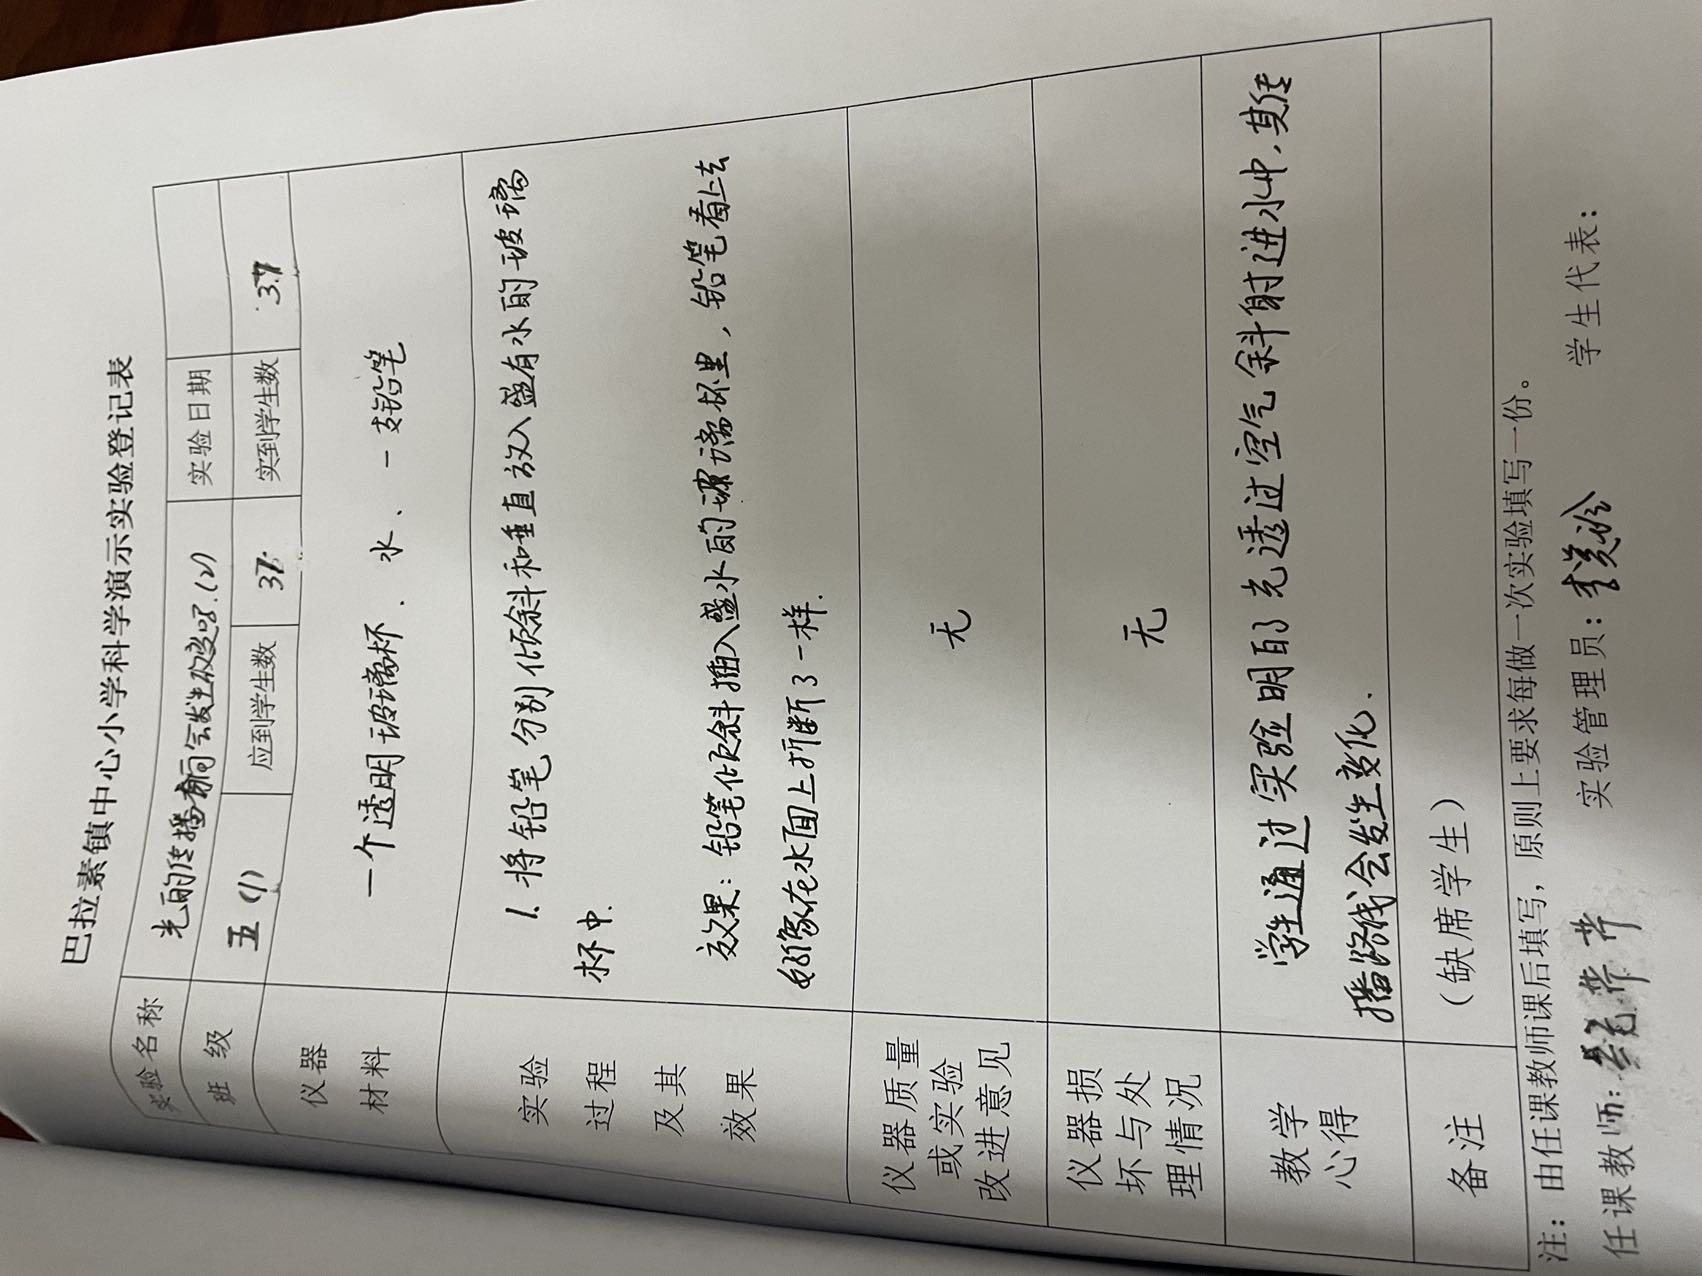 巴拉素镇中心小学科学演示实验登记表
实验名称 光的传播方向会发生改变吗.(2) 实验日期
班 级 五(1) 应到学生数 37 实到学生数 37
仪器
材料
一个透明玻璃杯、水、一支铅笔
实验
过程
及其
效果
1.将铅笔分别倾斜和垂直放入盛有水的玻璃
杯中.
效果:铅笔倾斜插入盛水的玻璃杯里,铅笔看上去
好像在水面上折断了一样.
仪器质量
或实验
改进意见
无
仪器损
坏与处
理情况
无
教学
心得
学生通过实验明白了光透过空气斜射进水中,其传
播路线会发生变化.
备注 (缺席学生)
注:由任课教师课后填写,原则上要求每做一次实验填写一份。
任课教师: 实验管理员: 学生代表: